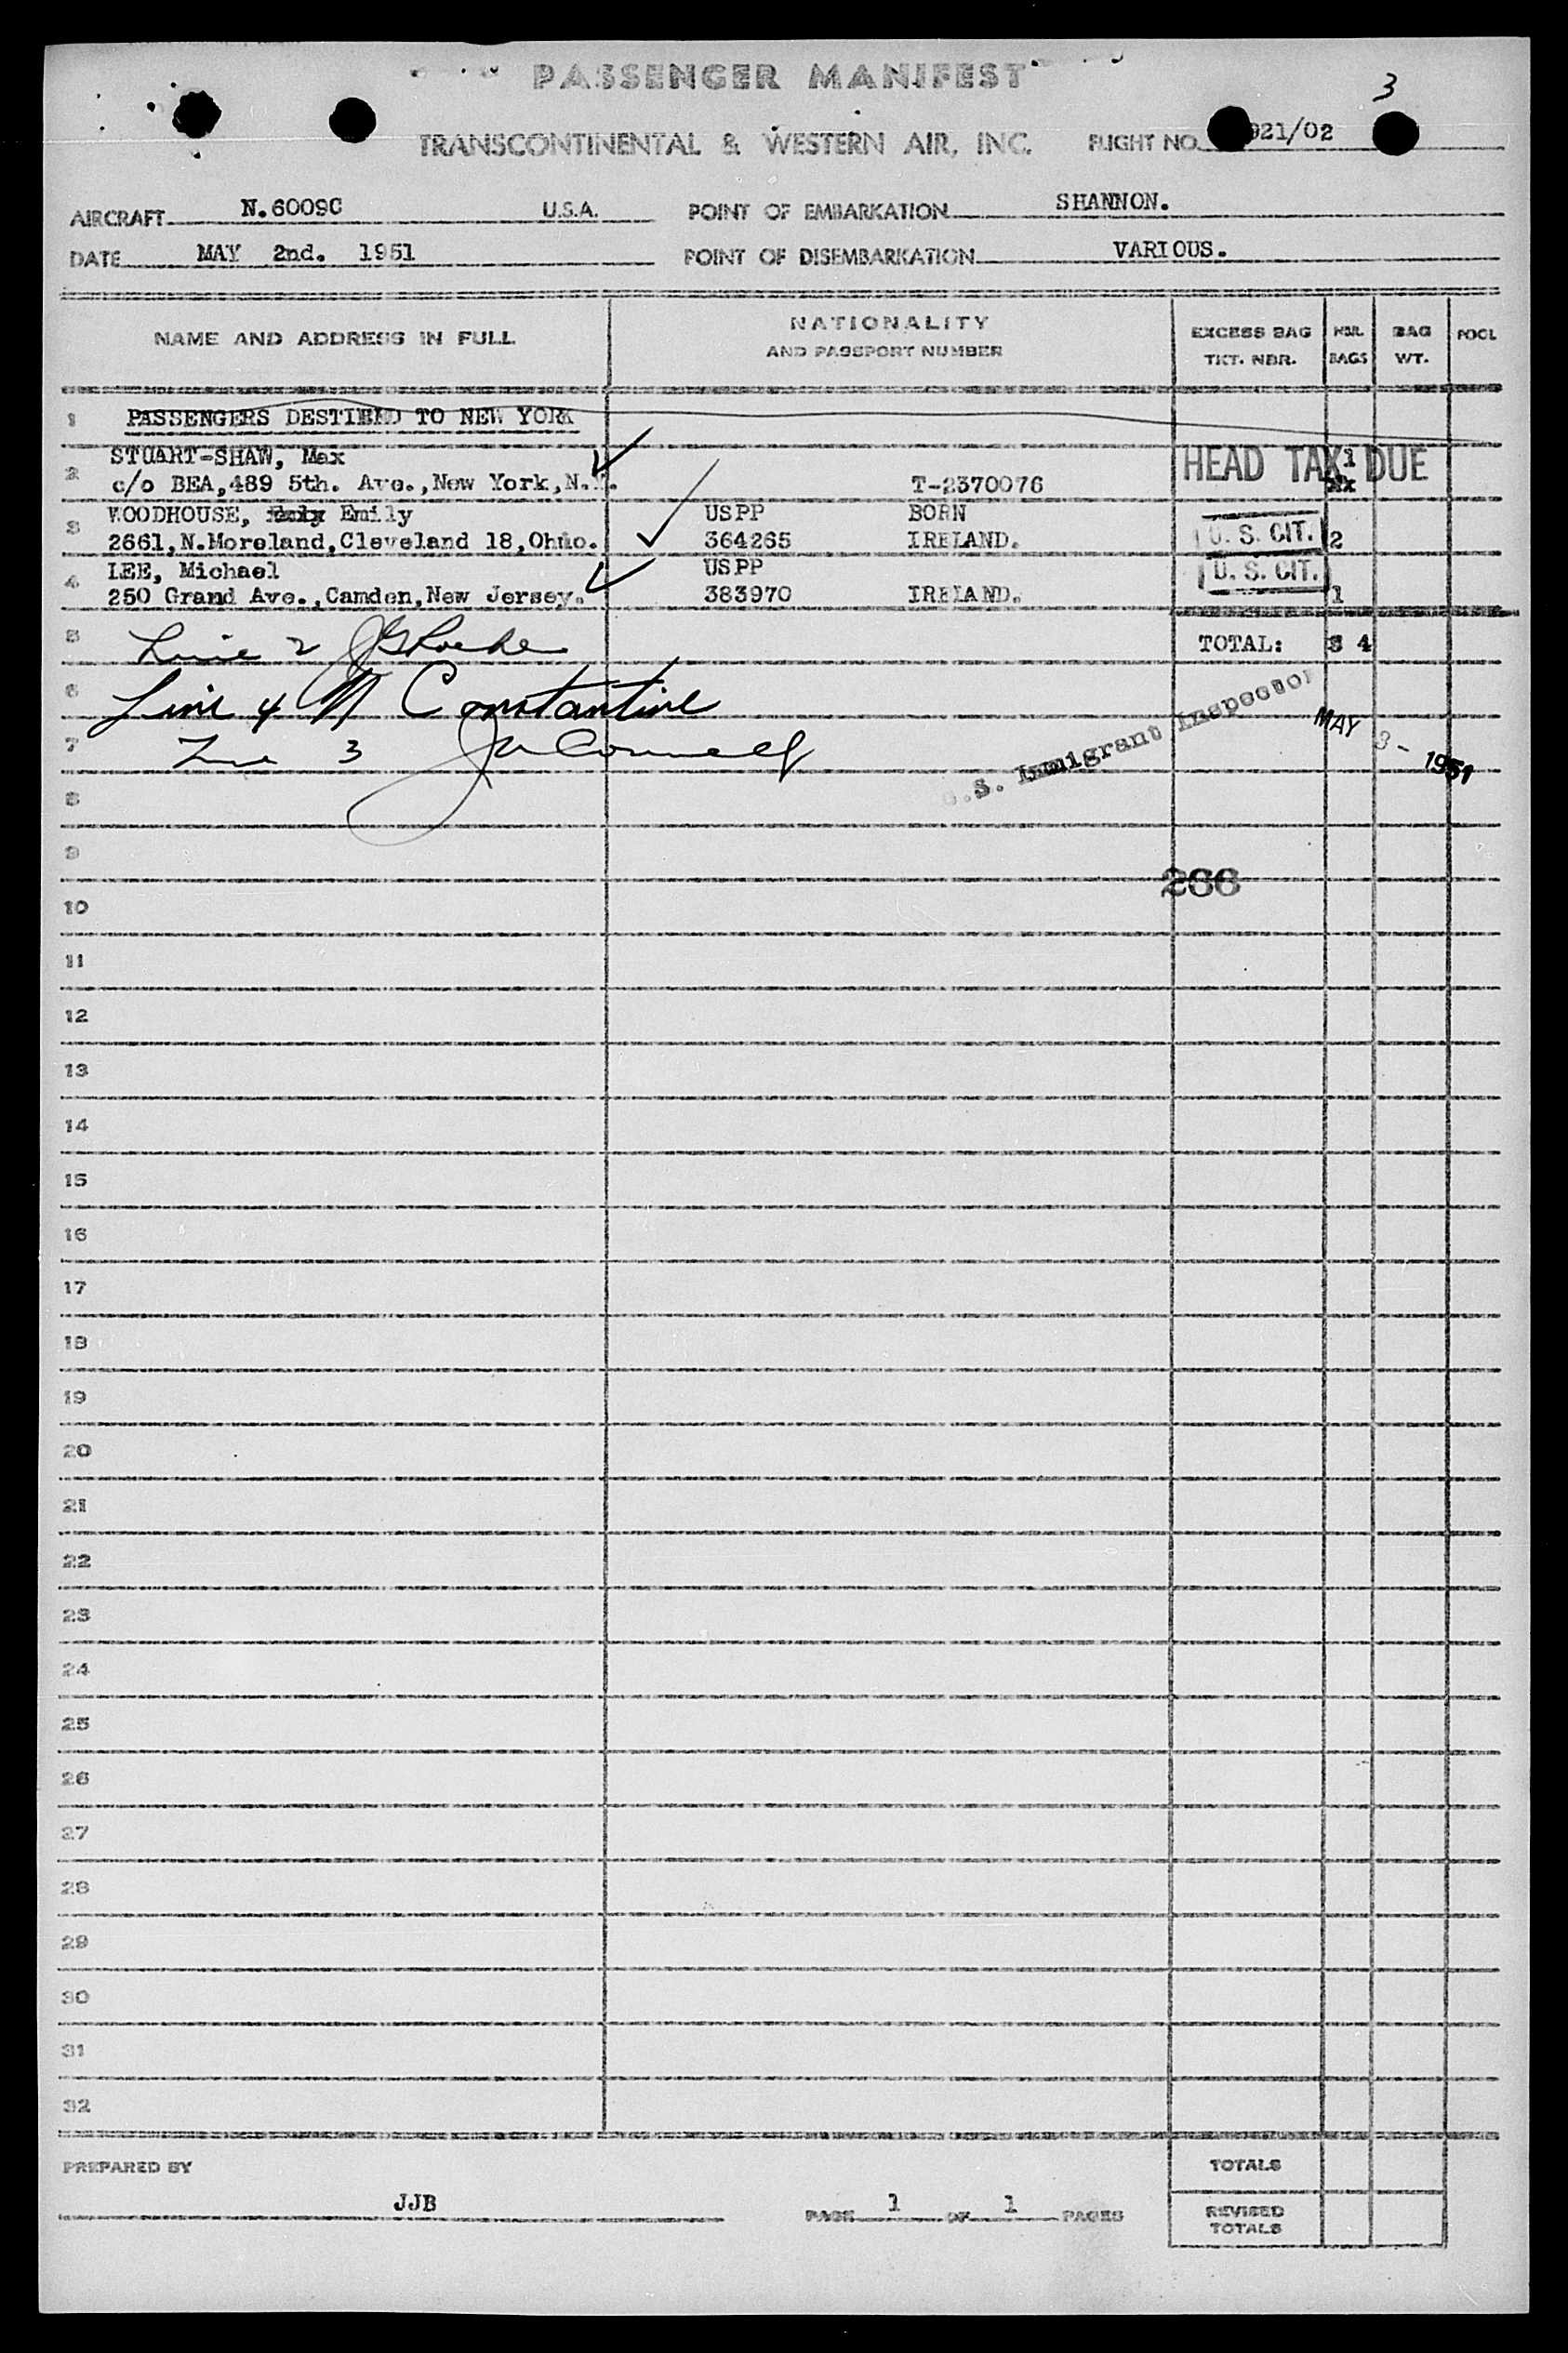 3
PASSENGER MANIFEST
TRANSCONTINENTAL & WESTERN AIR, INC. FLIGHT NO. 921/02
AIRCRAFT N.6009C U.S.A. POINT OF EMBARKATION SHANNON.
DATE MAY 2nd. 1951 POINT OF DISEMBARKATION VARIOUS.
NAME AND ADDRESS IN FULL NATIONALITY AND PASSPORT NUMBER EXCESS BAG TKT. NBR. NBR. BAGS BAG WT. POOL
1 PASSENGERS DESTINED TO NEW YORK
2 STUART-SHAW, Max
c/o BEA,489 5th. Ave.,New York,N.Y. T-2370076 HEAD TAX DUE 1
3 WOODHOUSE, Emily USPP BORN
2661,N.Moreland,Cleveland 18,Ohio. 364265 IRELAND. U. S. CIT. 2
4 LEE, Michael USPP
250 Grand Ave.,Camden,New Jersey. 383970 IRELAND. U. S. CIT. 1
5 Line 2 TOTAL: 4
6 Line 4 M Constantine
7 Line 3
U.S. Immigrant Inspector MAY 3 - 1951
8
9
266
10
11
12
13
14
15
16
17
18
19
20
21
22
23
24
25
26
27
28
29
30
31
32
PREPARED BY TOTALS
JJB PAGE 1 OF 1 PAGES REVISED TOTALS